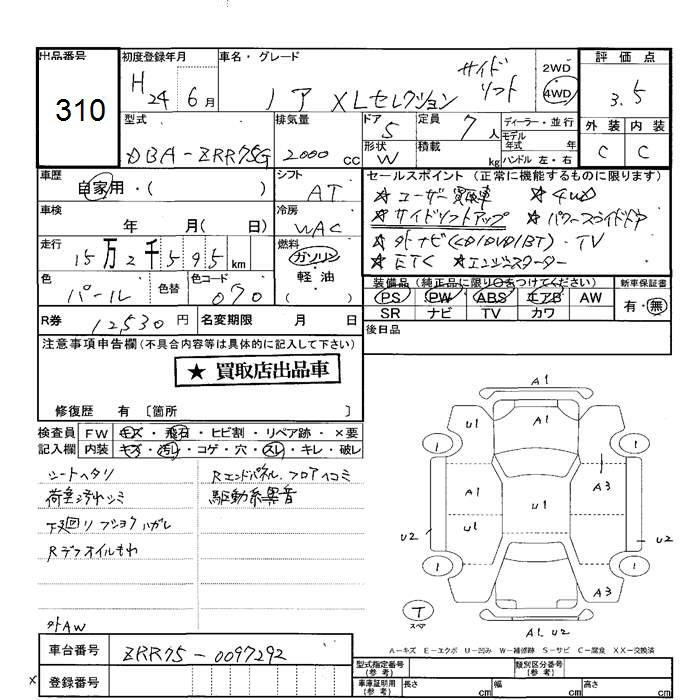 出品番号
310
初度登録年月
H 24 6月
車名・グレード
ノア XLセレクション
サイド
リフト
2WD
4WD
評価点
3.5
外装 内装
C C
型式
DBA-ZRR75G
排気量
2000 cc
ドア
5
定員
7人
形状
W
積載
kg
ディーラー・並行
モデル
年式 年
ハンドル 左・右
車歴
自家用・( )
シフト
AT
車検
年 月( 日)
冷房
WAC
走行
15万2千595km
燃料
ガソリン
軽・油
( )
色
パール
色替
色コード
070
R券 12,530円
名変期限 月 日
セールスポイント (正常に機能するものに限ります)
☆ユーザー買取車 ☆4WD
☆サイドリフトアップ ☆パワースライドドア
☆外ナビ(CD/DVD/BT)・TV
☆ETC ☆エンジンスターター
装備品(純正品に限り○をつけてください)
PS PW ABS エアB AW
SR ナビ TV カワ
新車保証書
有・無
後日品
注意事項申告欄(不具合内容等は具体的に記入して下さい)
★ 買取店出品車
修復歴 有 〔箇所 〕
検査員
記入欄
FW キズ・飛石・ヒビ割・リペア跡・×要
内装 キズ・汚れ・コゲ・穴・スレ・キレ・破レ
シートヘタリ
荷室汚れシミ
下廻りフショクハガレ
Rデフオイルもれ
外AW
Rエンドパネル、フロアヘコミ
駆動系異音
A1
U1
A1
1
1
A1
A3
U1
U1
U2
U2
1
1
A3
T
スペア
A1. U2
A-キズ E-エクボ U-凹み W-補修跡 S-サビ C-腐食 XX-交換済
車台番号
ZRR75-0097292
×
登録番号
型式指定番号
(参考)
類別区分番号
(参考)
車庫証明用
(参考)
長さ cm
幅 cm
高さ cm